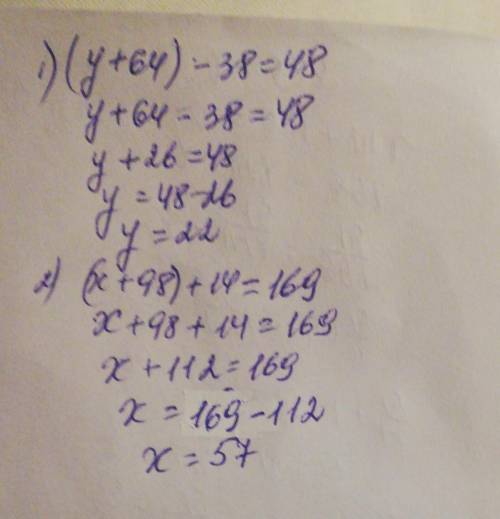 1) (y+64) - 38 = 48
y + 64 - 38 = 48
y + 26 = 48
y = 48 - 26
y = 22
2) (x + 98) + 14 = 169
x + 98 + 14 = 169
x + 112 = 169
x = 169 - 112
x = 57